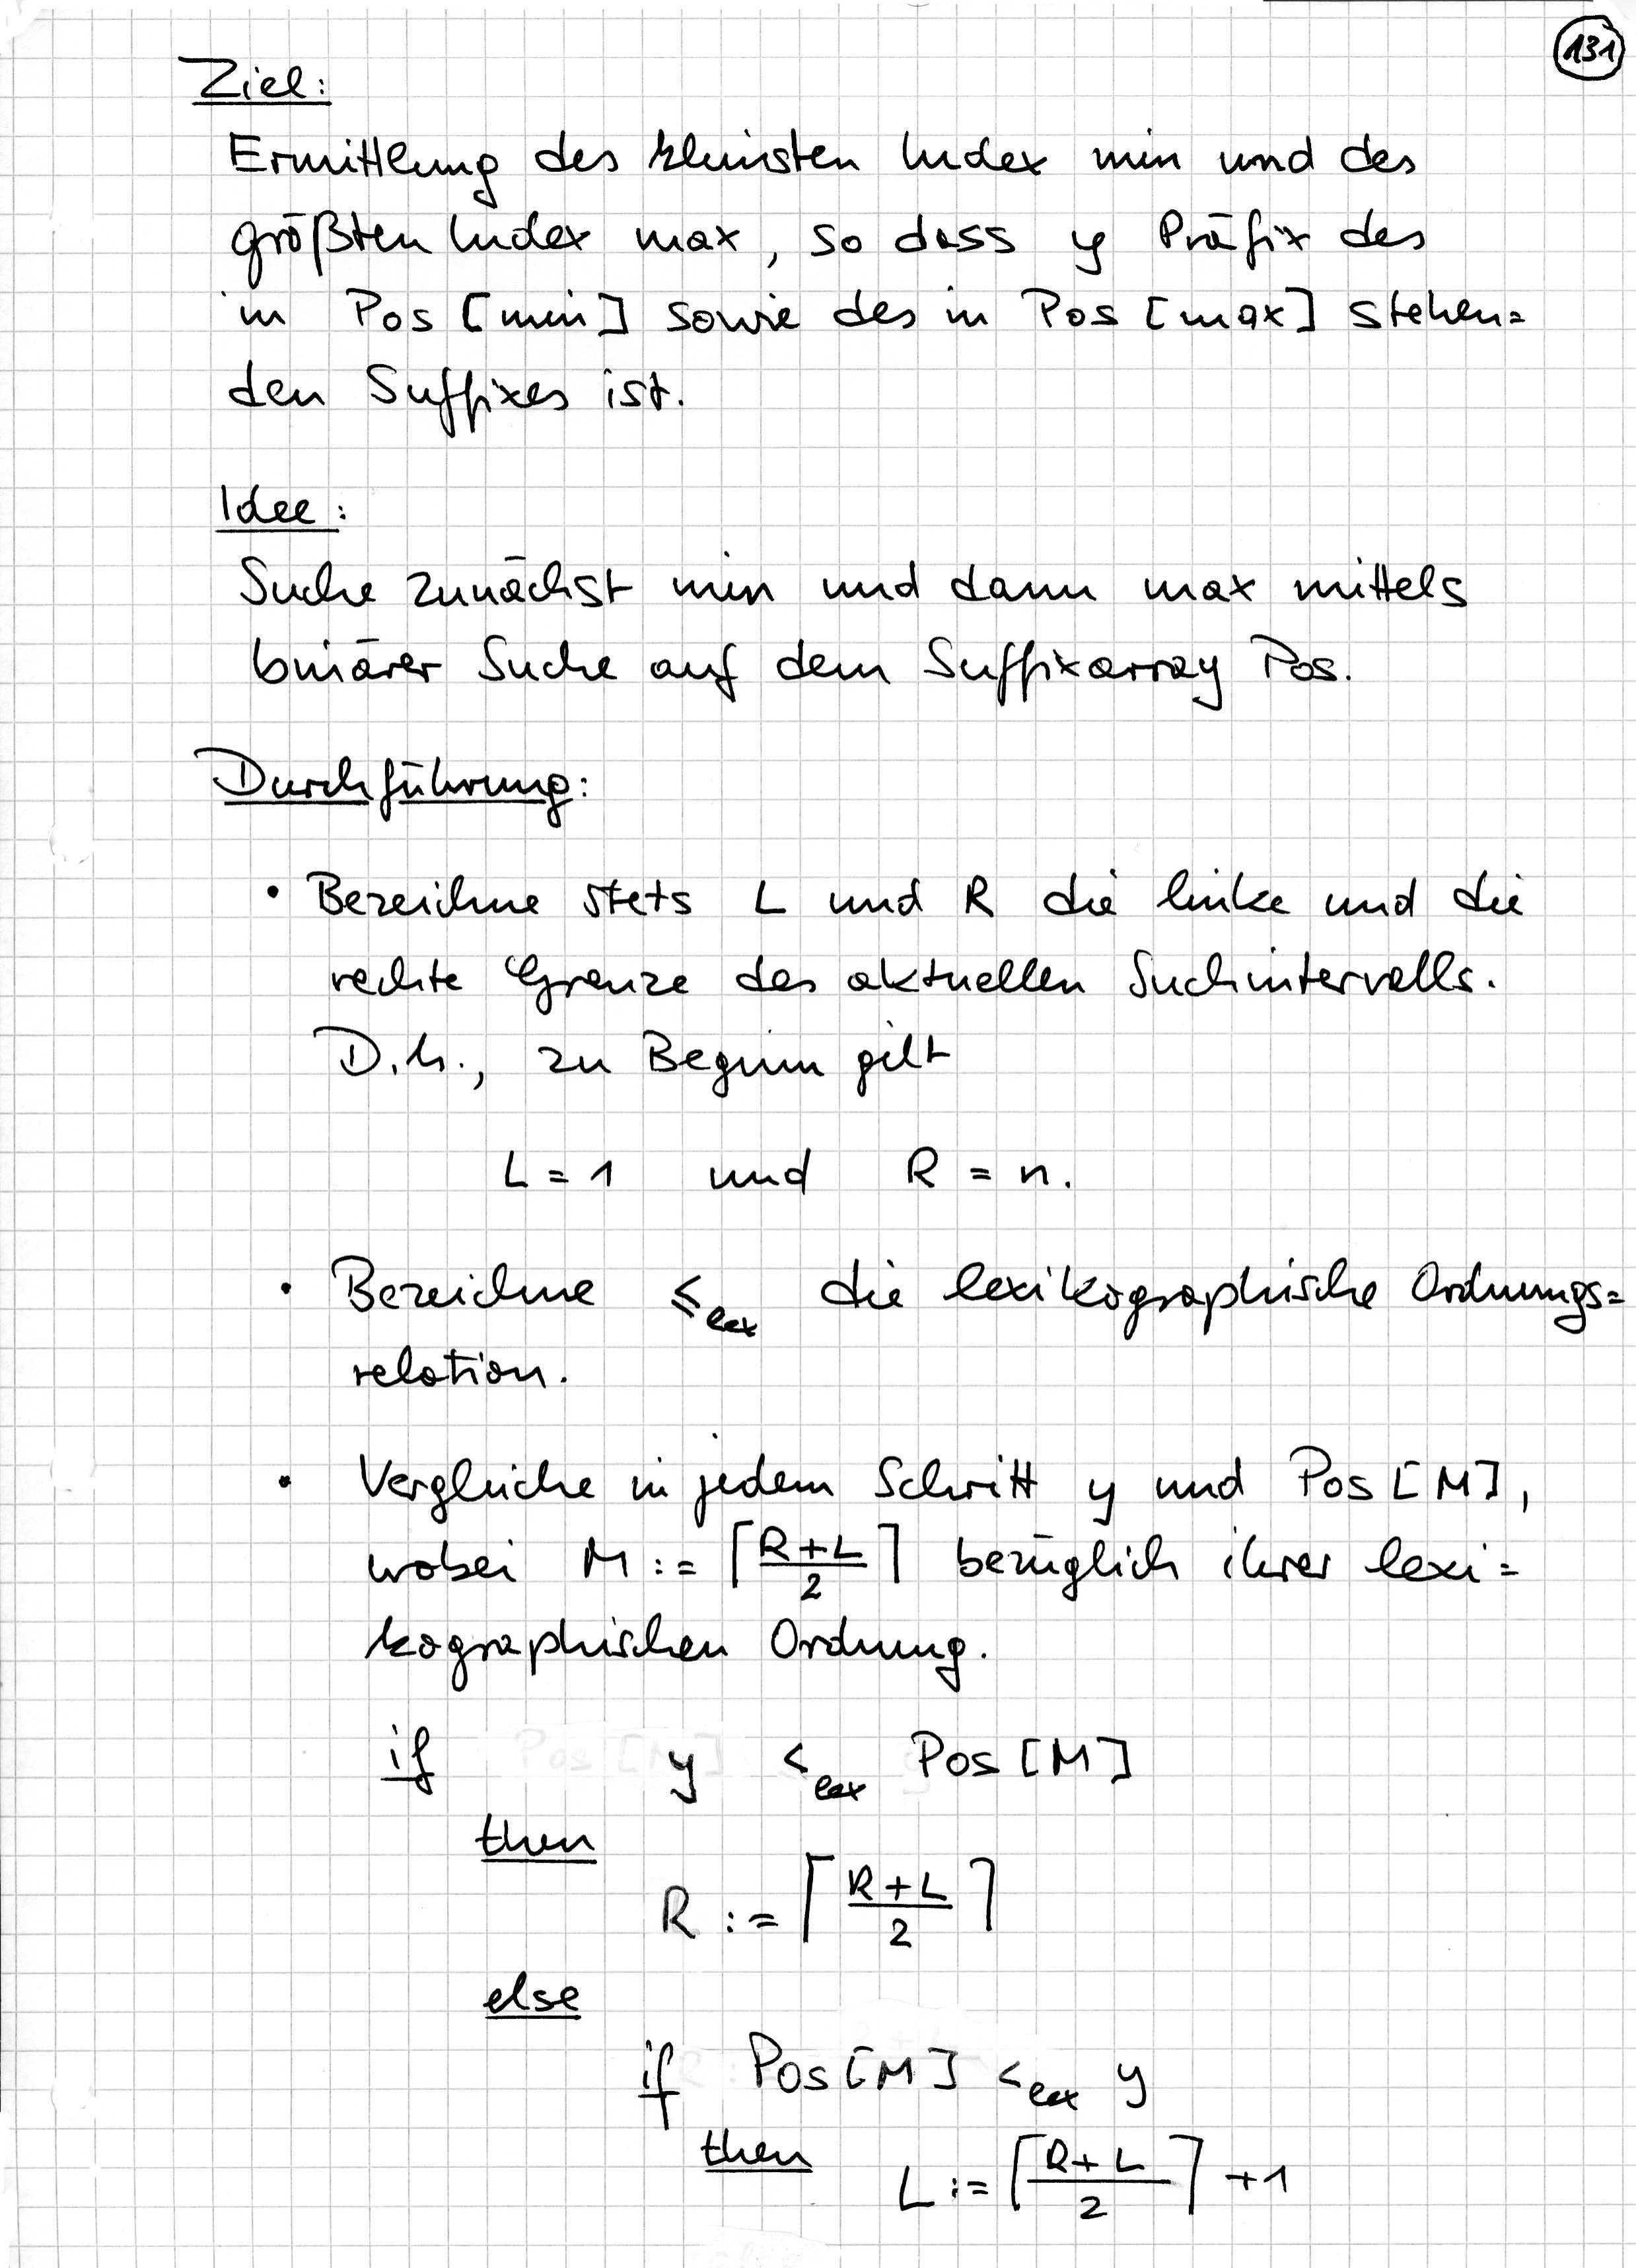 131
Ziel:
Ermittlung des kleinsten Index min und des
größten Index max, so dass y Präfix des
in Pos [min] sowie des in Pos [max] stehen=
den Suffixes ist.
Idee:
Suche zunächst min und dann max mittels
binärer Suche auf dem Suffixarray Pos.
Durchführung:
• Bezeichne stets L und R die linke und die
rechte Grenze des aktuellen Suchintervalls.
D.h., zu Beginn gilt
L = 1 und R = n.
• Bezeichne ≤lex die lexikographische Ordnungs=
relation.
• Vergleiche in jedem Schritt y und Pos [M],
wobei M := ⌈(R+L)/2⌉ bezüglich ihrer lexi=
kographischen Ordnung.
if y <lex Pos [M]
then
R := ⌈(R+L)/2⌉
else
if Pos [M] <lex y
then L := ⌈(R+L)/2⌉ +1